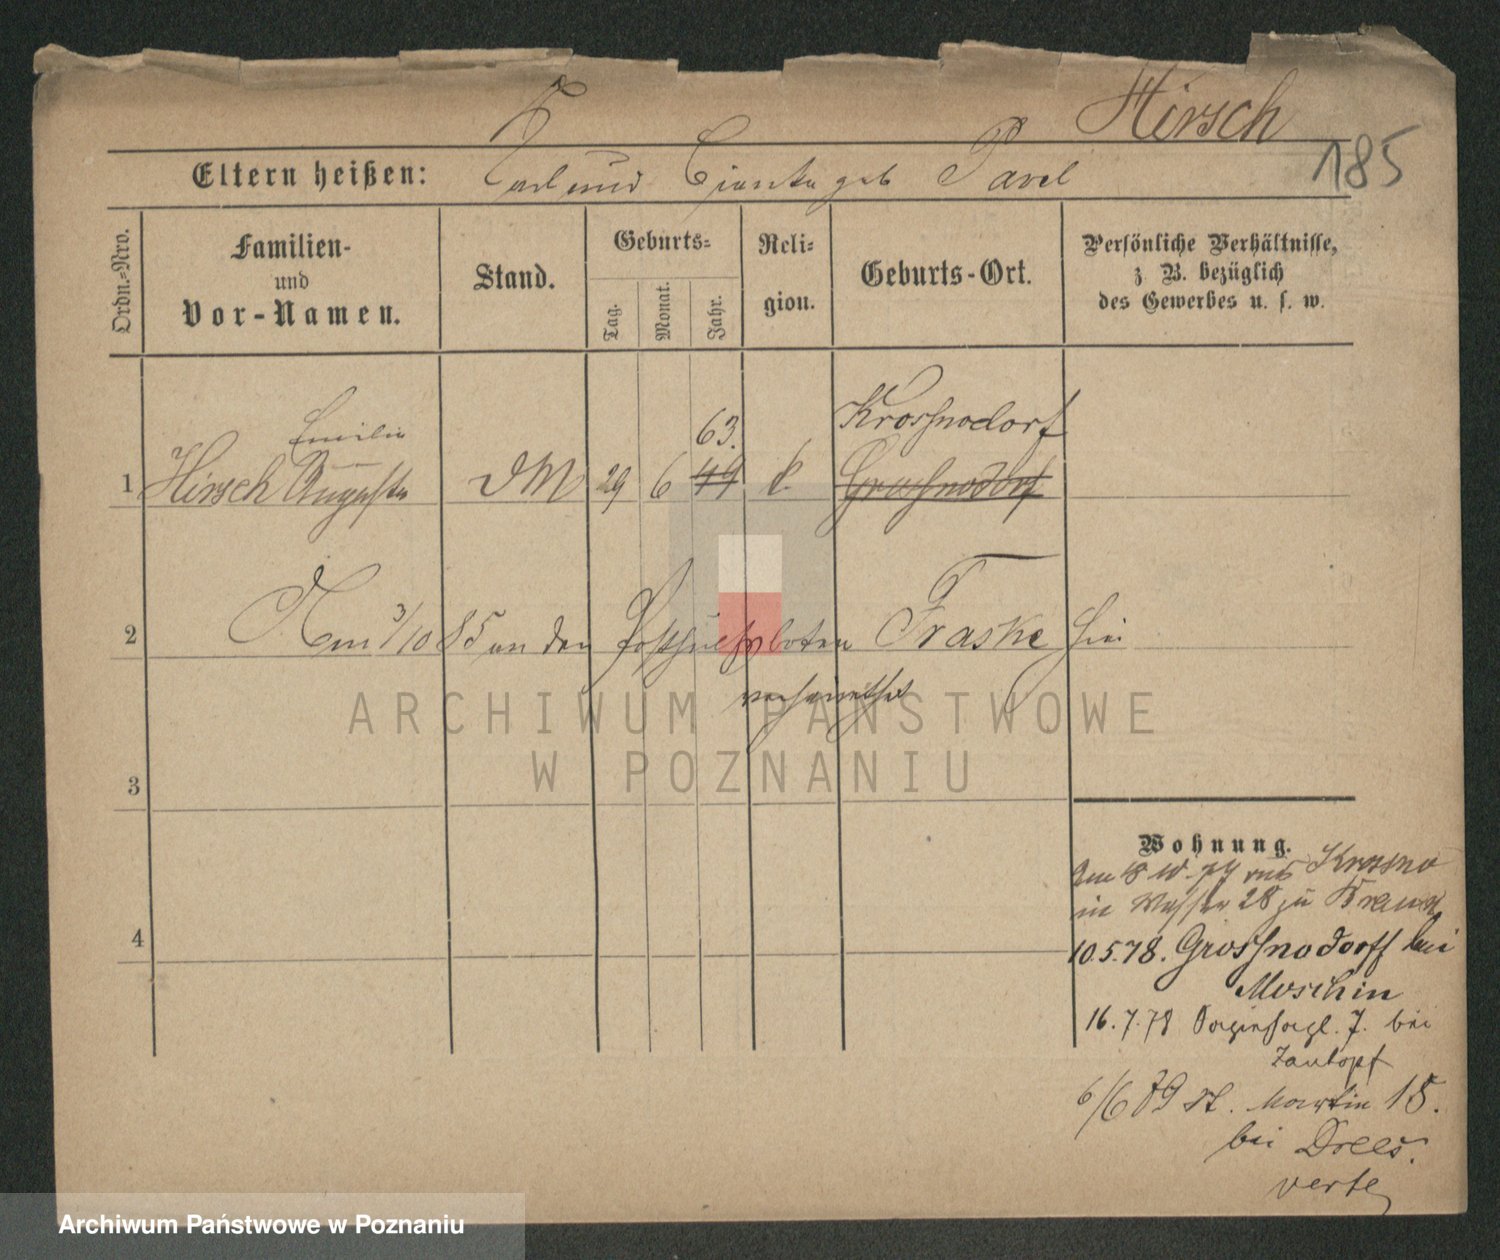 Hirsch
185
Eltern heißen: Carl und geb Pavel
Ordn.-Nro.
Familien-
und
Vor-Namen.
Stand.
Geburts-
Tag.
Monat.
Jahr.
Reli-
gion.
Geburts-Ort.
Persönliche Verhältnisse,
z. B. bezüglich
des Gewerbes u. s. w.
Emilie 63. Krossnodorf
1 Hirsch Auguste DM 29 6 49 k. Grossnodorf
2 Am 3/10 85 an den Posthülfsboten Traske hier
verheirathet
3
4
Wohnung.
Am 18 10. 77 aus Krossno
in Wasser 28 zu Kraus
10.5.78. Grossnodorff bei
Moschin
16.7.78 7. bei
Zantopf
6/6 79 St. Martin 15.
bei Drees.
verte
ARCHIWUM PAŃSTWOWE
W POZNANIU
Archiwum Państwowe w Poznaniu